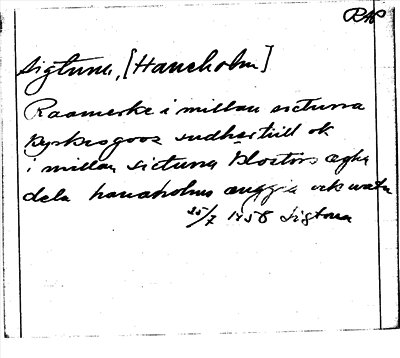 RAP
Sigtuna, [Haneholm]
Raamerke i millan sictuna
kyrkiogooz sudhertiill ok
i millan sictuna klosters æghe
dela hanaholms ænggia ok watn
25/7 1458 Sigtuna